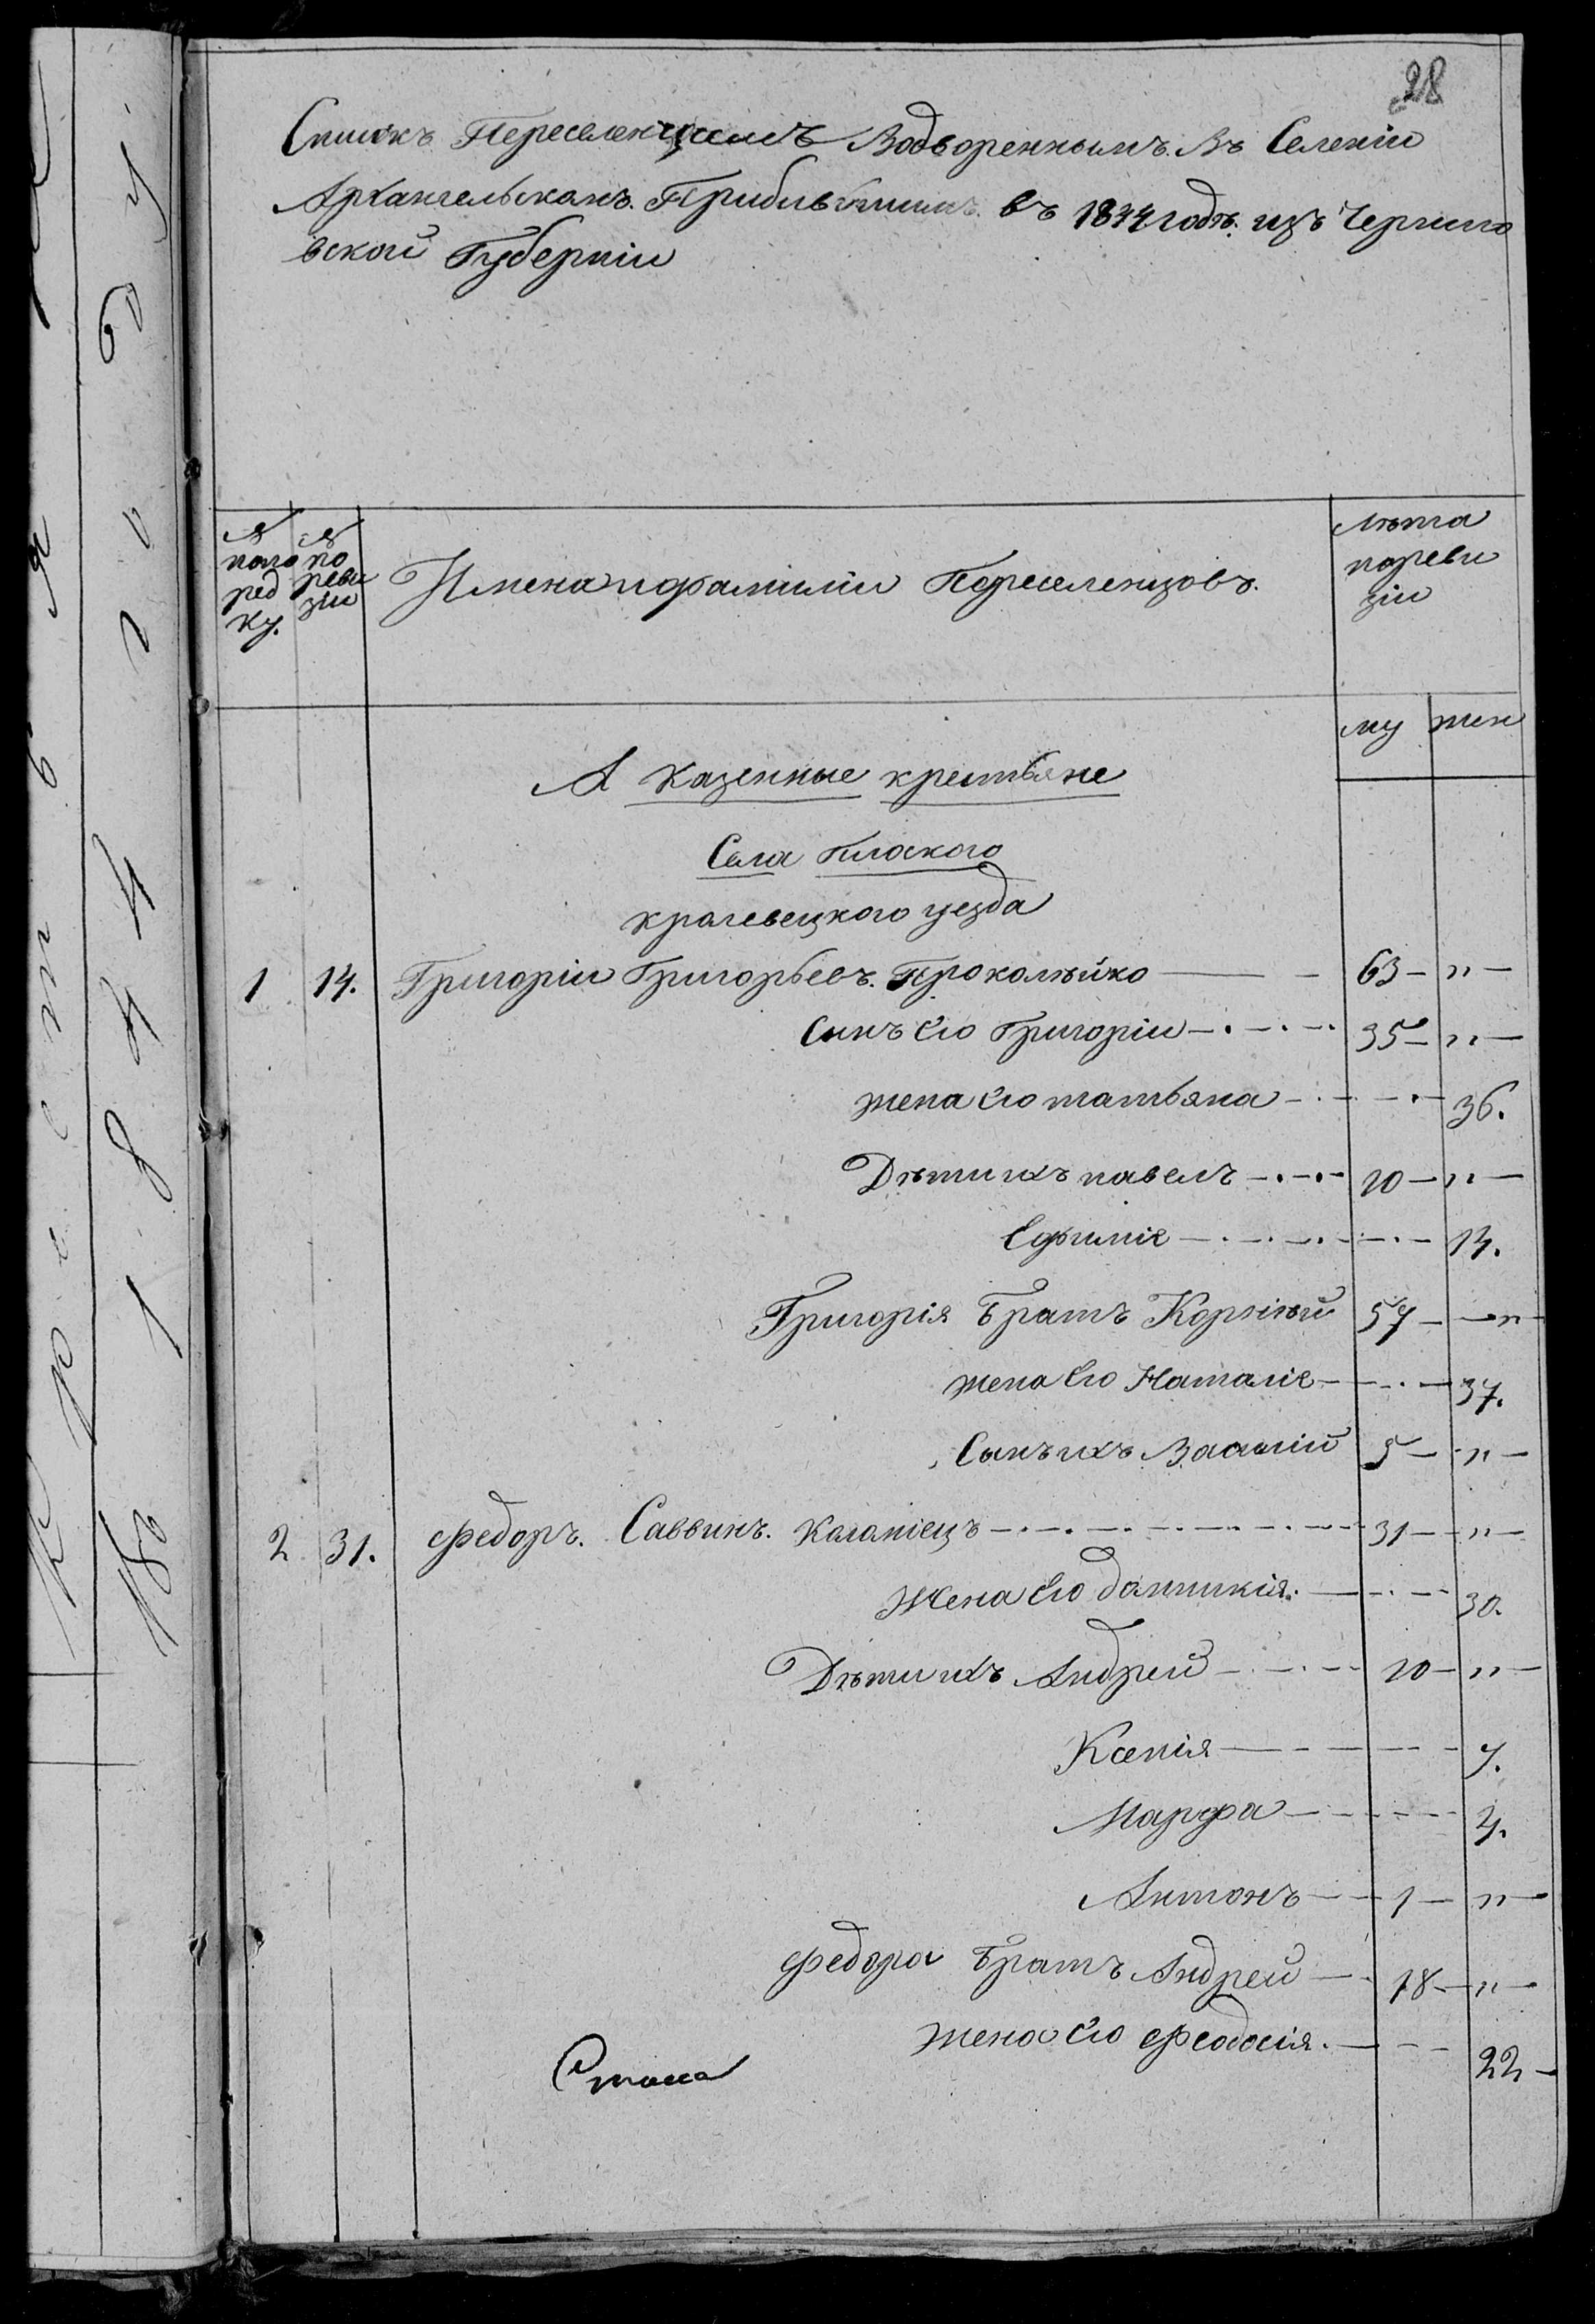 28
Списокъ Переселенцамъ Водвореннымъ. Въ Селеніи
Архангельскомъ. Прибывшимъ. въ 1844 годѣ. изъ Чернигo
вской Губерніи
№ попо ред ку.
№ по реви зіи
Имена и фамиліи Переселенцовъ.
лѣта
пореви
зіи
му жен
А казенные крестьяне
Села плоского
кролевецкого уезда
1 14. Григоріи Григорьевъ. Проколѣйко 63 — „ —
Сынъ Его Григоріи 35 — „ —
жена Его татьяна 36.
Дѣти ихъ павелъ 10 — „ —
Ефиміе 13.
Григорія Братъ Корнѣй 57 — „
жена Его Наталіе 37.
Сынъ ихъ Василій 5 — „ —
2 31. Федоръ. Саввинъ. Калапіецъ 31 — „ —
Жена Его домникія. 30.
Дѣти ихъ Андрей 10 — „ —
Ксенія 7.
Марфа 4.
Антонъ 1 — „ —
Федора Братъ Андрей 18 — „ —
жена Его Феодосія. 22 —